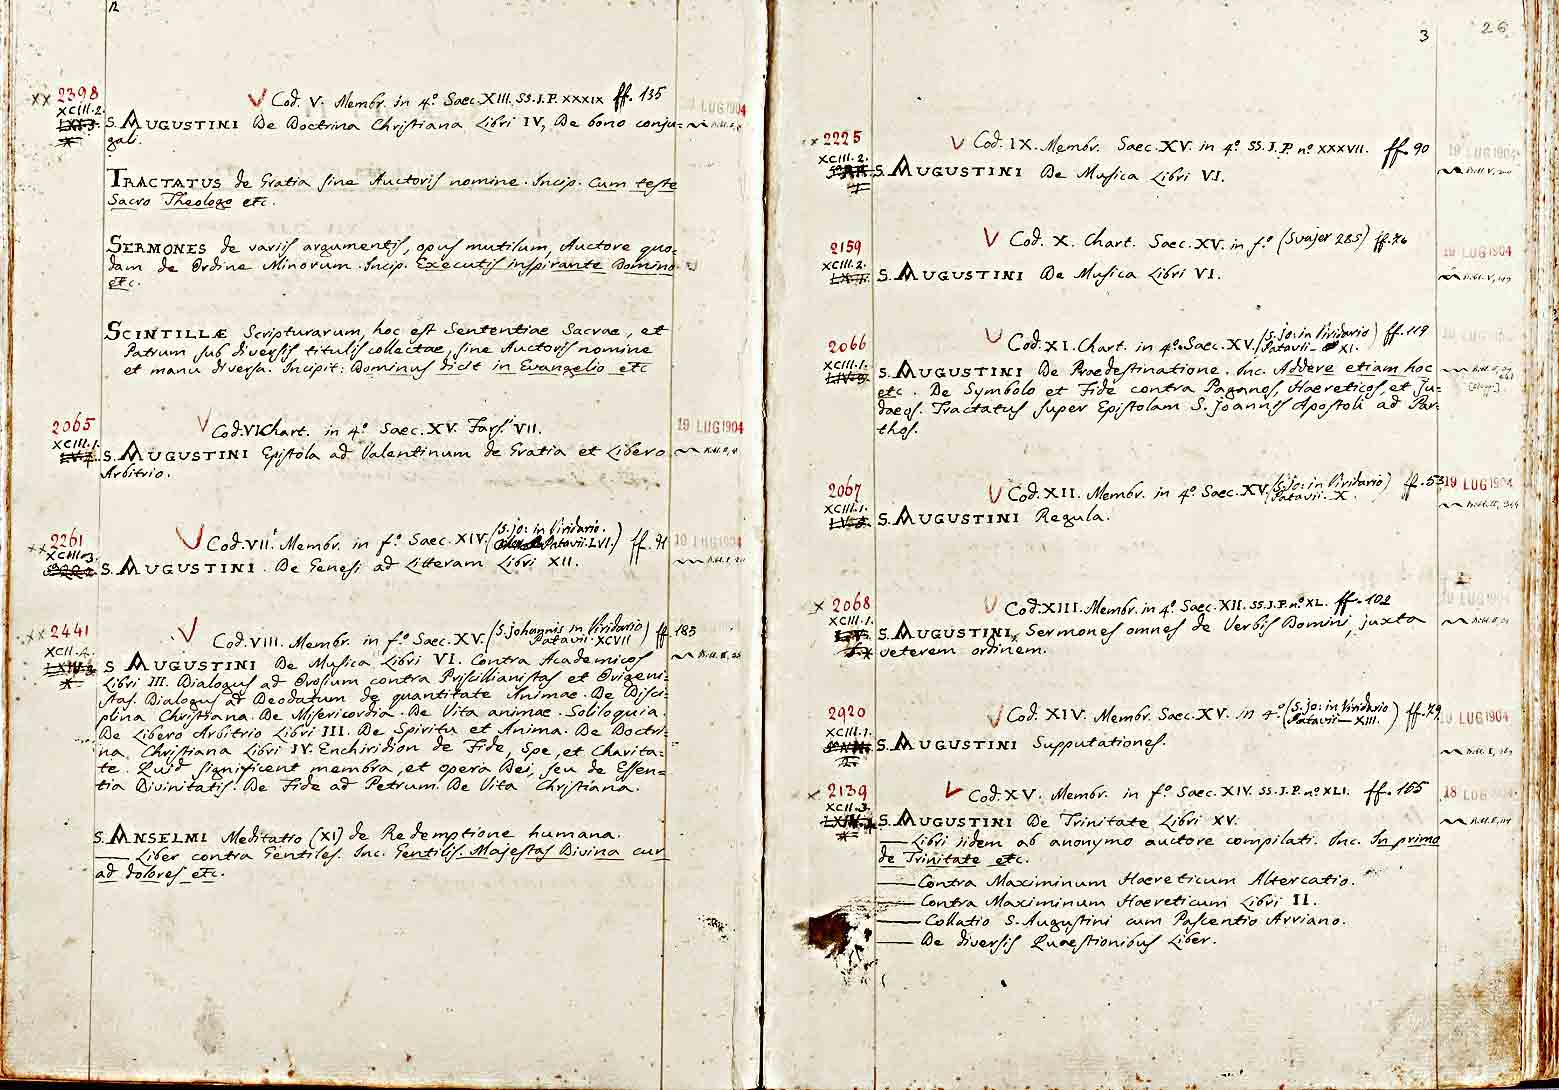 2
2398
XCIII.2.
Cod. V. Membr. in 4.º Saec. XIII. SS. J. P. XXXIX ff. 135
LUG 1904
S. AUGUSTINI De Doctrina Christiana Libri IV, De bono conju=
gali.
TRACTATUS de Gratia sine Auctoris nomine. Incip. Cum teste
Sacro Theologo etc.
SERMONES de variis argumentis, opus mutilum, Auctore quo=
dam de Ordine Minorum. Incip. Executis inspirante Domino
etc.
SCINTILLÆ Scripturarum, hoc est Sententiae Sacrae, et
Patrum sub diversis titulis collectae, sine Auctoris nomine
et manu diversa. Incipit: Dominus dicit in Evangelio etc
2065
XCIII.1.
Cod. VI. Chart. in 4.º Saec. XV. Fars. VII.
19 LUG 1904
S. AUGUSTINI Epistola ad Valentinum de Gratia et Libero
Arbitrio.
2261
XCIII.3.
Cod. VII. Membr. in f.º Saec. XIV. (S. Jo: in Viridario.
Patavii. LVI.) ff. 71
19 LUG 1904
S. AUGUSTINI. De Genesi ad Litteram Libri XII.
2441
XCII.4.
Cod. VIII. Membr. in f.º Saec. XV. (S. Johannis in Viridario)
Patavii. XCVII ff. 185
S AUGUSTINI De Musica Libri VI. Contra Academicos
Libri III. Dialogus ad Orosium contra Priscillianistas et Origeni=
stas. Dialogus ad Deodatum de quantitate Animae. De Disci=
plina Christiana. De Misericordia. De Vita animae. Soliloquia.
De Libero Arbitrio Libri III. De Spiritu et Anima. De Doctri=
na Christiana Libri IV. Enchiridion de Fide, Spe, et Charita=
te. Quid significent membra, et opera Dei, seu de Essen=
tia Divinitatis. De Fide ad Petrum. De Vita Christiana.
S. ANSELMI Meditatio (XI) de Redemptione humana.
— Liber contra Gentiles. Inc. Gentilis. Majestas Divina cur
ad dolores etc.
3
26
2225
XCIII.2.
Cod. IX. Membr. Saec. XV. in 4.º SS. J. P. nº XXXVII. ff. 90
19 LUG 1904
S. AUGUSTINI De Musica Libri VI.
2159
XCIII.2.
Cod. X. Chart. Saec. XV. in f.º (Svajer 285) ff. 76
19 LUG 1904
S. AUGUSTINI De Musica Libri VI.
2066
XCIII.1.
Cod. XI. Chart. in 4.º Saec. XV. (S. Jo: in Viridario)
Patavii — XI. ff. 119
S. AUGUSTINI De Praedestinatione. Inc. Addere etiam hoc
etc. De Symbolo et Fide contra Paganos, Haereticos, et Ju=
daeos. Tractatus super Epistolam S. Joannis Apostoli ad Par=
thos.
2067
XCIII.1.
Cod. XII. Membr. in 4.º Saec. XV. (S. Jo: in Viridario)
Patavii — X. ff. 53
19 LUG 1904
S. AUGUSTINI Regula.
2068
XCIII.1.
Cod. XIII. Membr. in 4.º Saec. XII. SS. J. P. nº XL. ff. 102
S. AUGUSTINI, Sermones omnes de Verbis Domini, juxta
veterem ordinem.
2920
XCIII.1.
Cod. XIV. Membr. Saec. XV. in 4.º (S. Jo: in Viridario
Patavii — XIII.) ff. 79
19 LUG 1904
S. AUGUSTINI Supputationes.
2139
XCII.3.
Cod. XV. Membr. in f.º Saec. XIV. SS. J. P. nº XLI. ff. 165
18 LUG 1904
S. AUGUSTINI De Trinitate Libri XV.
— Libri iidem ab anonymo auctore compilati. Inc. In primo
de Trinitate etc.
— Contra Maximinum Haereticum Altercatio.
— Contra Maximinum Haereticum Libri II.
— Collatio S. Augustini cum Pascentio Arriano.
— De diversis Quaestionibus Liber.